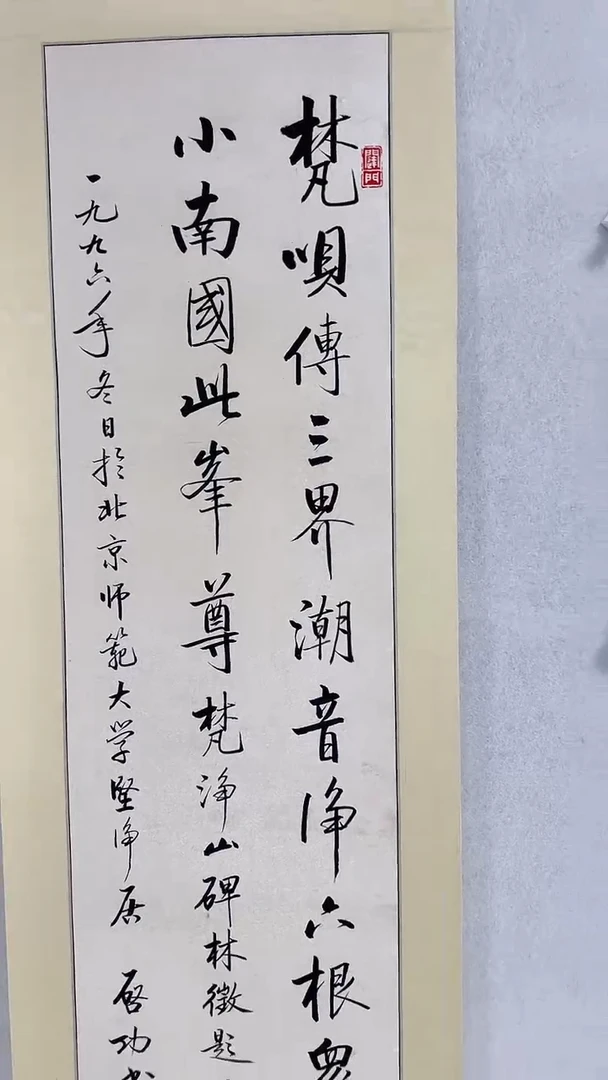 梵唄傳三界潮音淨六根衆
小南國此峯尊梵淨山碑林徵題
一九九六年冬日於北京师範大学堅淨居 啓功书